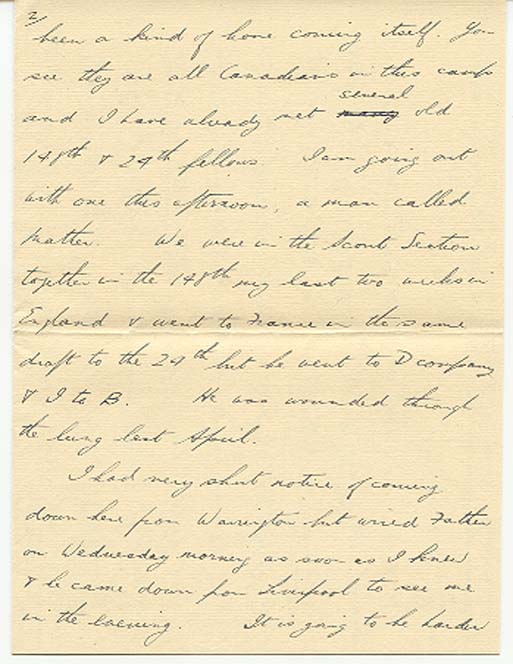 2/
been a kind of home coming itself. You
see they are all Canadians in this camp
several
and I have already met many old
148th & 24th fellows. I am going out
with one this afternoon, a man called
Matter. We were in the Scout Section
together in the 148th my last two weeks in
England & went to France in the same
draft to the 24th but he went to D company
& I to B. He was wounded through
the lung last April.
I had very short notice of coming
down here from Warrington but wired Father
on Wednesday morning as soon as I knew
& he came down from Liverpool to see me
in the evening. It is going to be harder